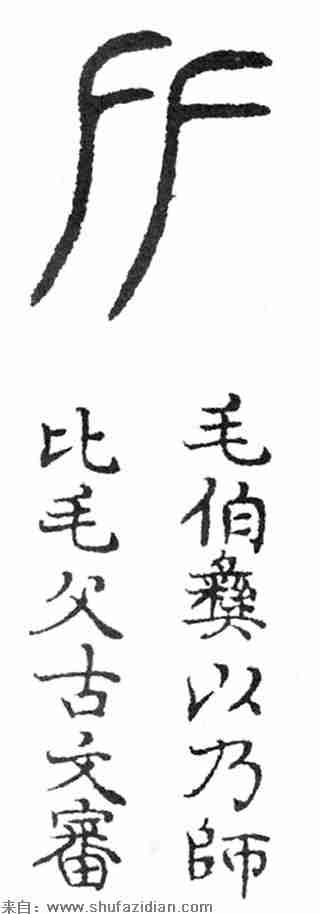 比
毛伯彝以乃師
比毛父古文審
来自：www.shufazidian.com